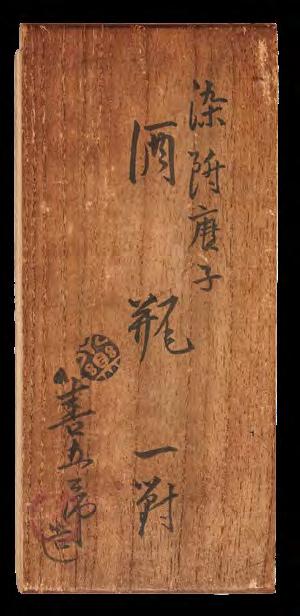 染附唐子
酒瓶一對
善五郎造